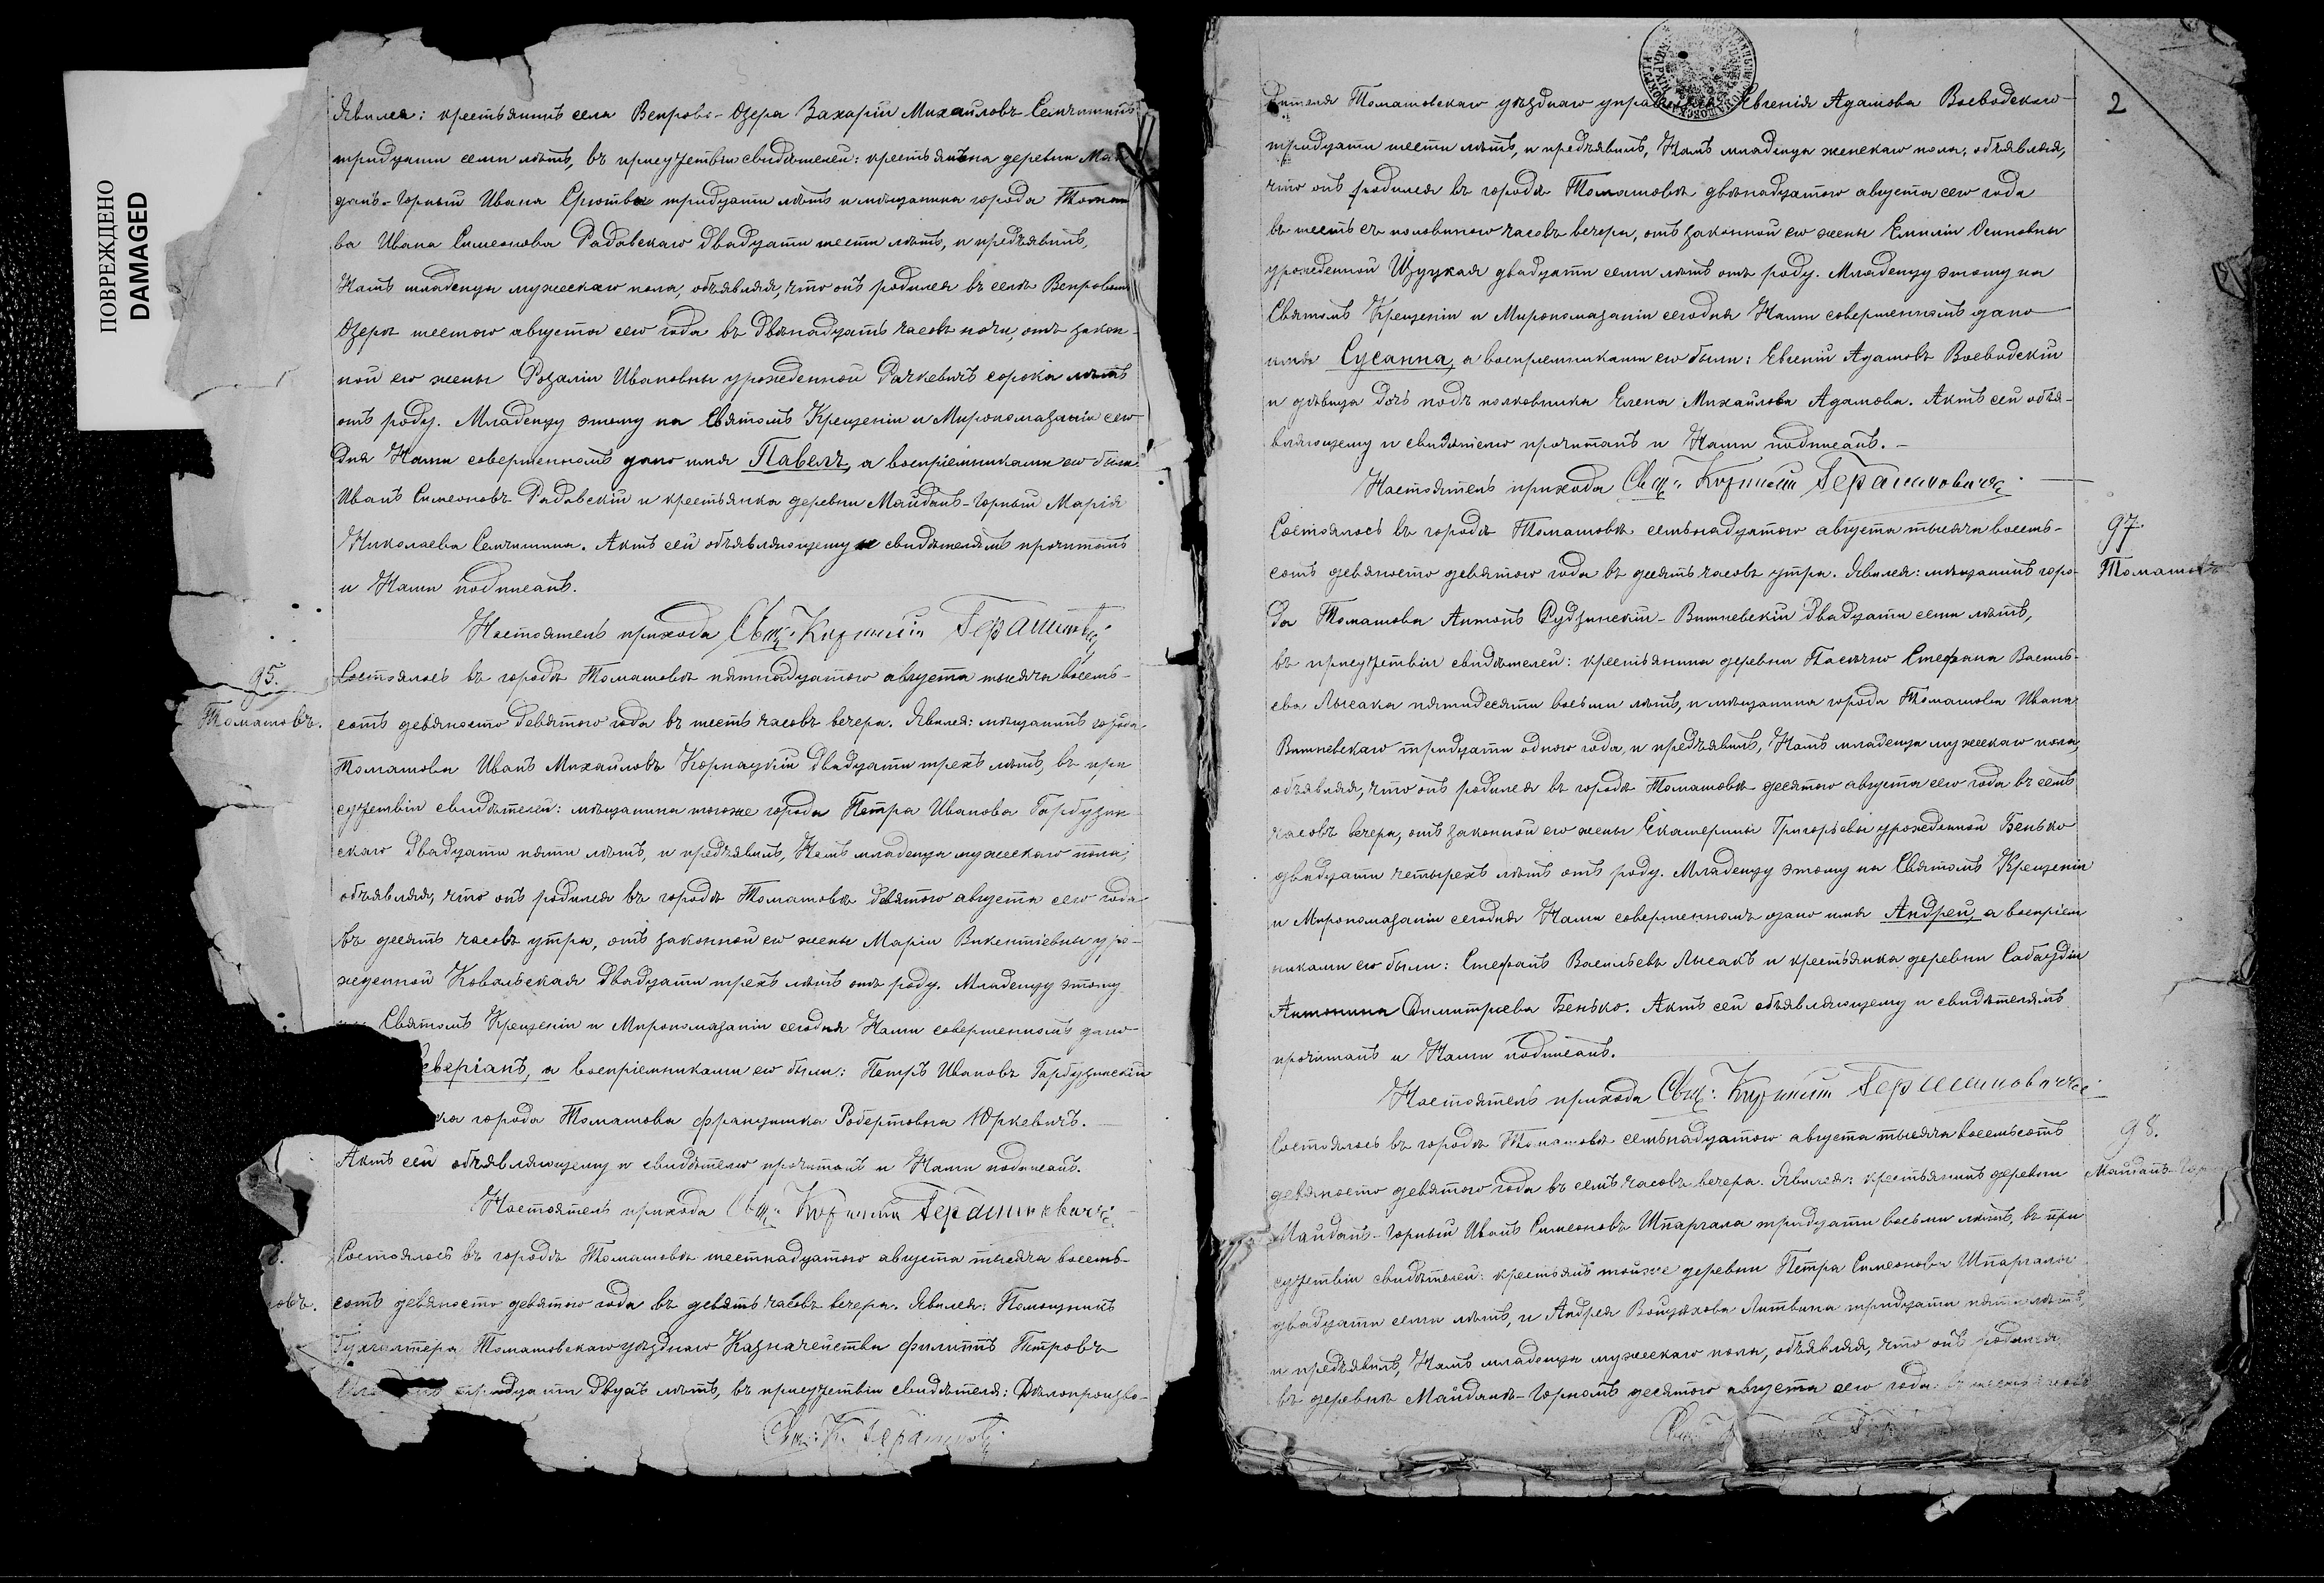 ПОВРЕЖДЕНО
DAMAGED
Явился: крестьянинъ села Вепрово-Озера Захарій Михайловъ Семчишинъ
тридцати семи лѣтъ, въ присутствіи свидѣтелей: крестьянина деревни Май
данъ-Горный Ивана тридцати лѣтъ и мѣщанина города Томашо
ва Ивана Симеонова Радовскаго двадцати шести лѣтъ, и предъявилъ
Намъ младенца мужескаго пола, объявляя, что онъ родился въ селѣ Вепровомъ
Озерѣ шестого августа сего года въ двѣнадцать часовъ ночи, отъ закон-
ной его жены Розаліи Ивановны урожденной Рачкевичъ сорока лѣтъ
отъ роду. Младенцу этому на Святомъ Крещеніи и Миропомазаніи сего
дня Нами совершенномъ дано имя Павелъ, а воспріемниками его были:
Иванъ Симеоновъ Радовскій и крестьянка деревни Майданъ-Горный Марія
Николаева Семчишина. Актъ сей объявляющему и свидѣтелямъ прочитанъ
и Нами подписанъ.
Настоятель прихода Свщ:
95.
Томашовъ.
Состоялось въ городѣ Томашовѣ пятнадцатого августа тысяча восемь-
сотъ девяносто девятого года въ шесть часовъ вечера. Явился: мѣщанинъ города
Томашова Иванъ Михайловъ двадцати трехъ лѣтъ, въ при
сутствіи свидѣтелей: мѣщанина тогоже города Петра Иванова Гарбузин-
скаго двадцати пяти лѣтъ, и предъявилъ, Намъ младенца мужескаго пола,
объявляя, что онъ родился въ городѣ Томашовѣ девятого августа сего года
въ десять часовъ утра, отъ законной его жены Маріи Викентіевны уро-
жденной Ковальская двадцати трехъ лѣтъ отъ роду. Младенцу этому
Святомъ Крещеніи и Миропомазаніи сегодня Нами совершенномъ дано
еверіанъ, а воспріемниками его были: Петръ Ивановъ Гарбузинскій
ка города Томашова Францишка Робертовна Юркевичъ.
Актъ сей объявляющему и свидѣтелю прочитанъ и Нами подписанъ.
Настоятель прихода Свщ:
овъ.
Состоялось въ городѣ Томашовѣ шестнадцатого августа тысяча восемь-
сотъ девяносто девятого года въ девять часовъ вечера. Явился: Помощникъ
Бухгалтера Томашовскаго уѣзднаго Казначейства Филиппъ Петровъ
тридцати двухъ лѣтъ, въ присутствіи свидѣтеля: Дѣлопроизво-
2
дителя Томашовскаго уѣзднаго Евгенія Адамова Воеводскаго
тридцати шести лѣтъ, и предъявилъ, Намъ младенца женскаго пола, объявляя,
что онъ родился въ городѣ Томашовѣ двѣнадцатого августа сего года
въ шесть съ половиною часовъ вечера, отъ законной его жены Емиліи Осиповны
урожденной Щуцкая двадцати семи лѣтъ отъ роду. Младенцу этому на
Святомъ Крещеніи и Миропомазаніи сегодня Нами совершенномъ дано
имя Сусанна, а воспріемниками его были: Евгеній Адамовъ Воеводскій
и дѣвица дочь подъ полковника Елена Михайлова Адамова. Актъ сей объя-
вляющему и свидѣтелю прочитанъ и Нами подписанъ.-
Настоятель прихода Свщ: Герасимовичъ
97.
Томашовъ
Состоялось въ городѣ Томашовѣ семьнадцатого августа тысяча восемь-
сотъ девяносто девятого года въ десять часовъ утра. Явился: мѣщанинъ горо
да Томашова Антонъ Рудзинскій-Вишневскій двадцати семи лѣтъ,
въ присутствіи свидѣтелей: крестьянина деревни Пасѣчно Стефана Василь-
ева Лысака пятидесяти восьми лѣтъ, и мѣщанина города Томашова Ивана
Вишневскаго тридцати одного года, и предъявилъ, Намъ младенца мужескаго пола,
объявляя, что онъ родился въ городѣ Томашовѣ десятого августа сего года въ семь
часовъ вечера, отъ законной его жены Екатерины Григорьевы урожденной Бенько
двадцати четырехъ лѣтъ отъ роду. Младенцу этому на Святомъ Крещеніи
и Миропомазаніи сегодня Нами совершенномъ дано имя Андрей, а воспріем
никами его были: Стефанъ Васильевъ Лысакъ и крестьянка деревни
Антонина Димитріева Бенько. Актъ сей объявляющему и свидѣтелямъ
прочитанъ и Нами подписанъ.
Настоятель прихода Свщ: Герасимовичъ
98.
Майданъ-
Состоялось въ городѣ Томашовѣ семьнадцатого августа тысяча восемьсотъ
девяносто девятого года въ семь часовъ вечера. Явился: крестьянинъ деревни
Майданъ-Горный Иванъ Симеоновъ Шпаргала тридцати восьми лѣтъ, въ при
сутствіи свидѣтелей: крестьянъ тойже деревни Петра Симеонова Шпаргалы
двадцати семи лѣтъ, и Андрея Войцѣхова Литвина тридцати пяти лѣтъ,
и предъявилъ, Намъ младенца мужескаго пола, объявляя, что онъ родился
въ деревнѣ Майданѣ-Горномъ десятого августа сего года